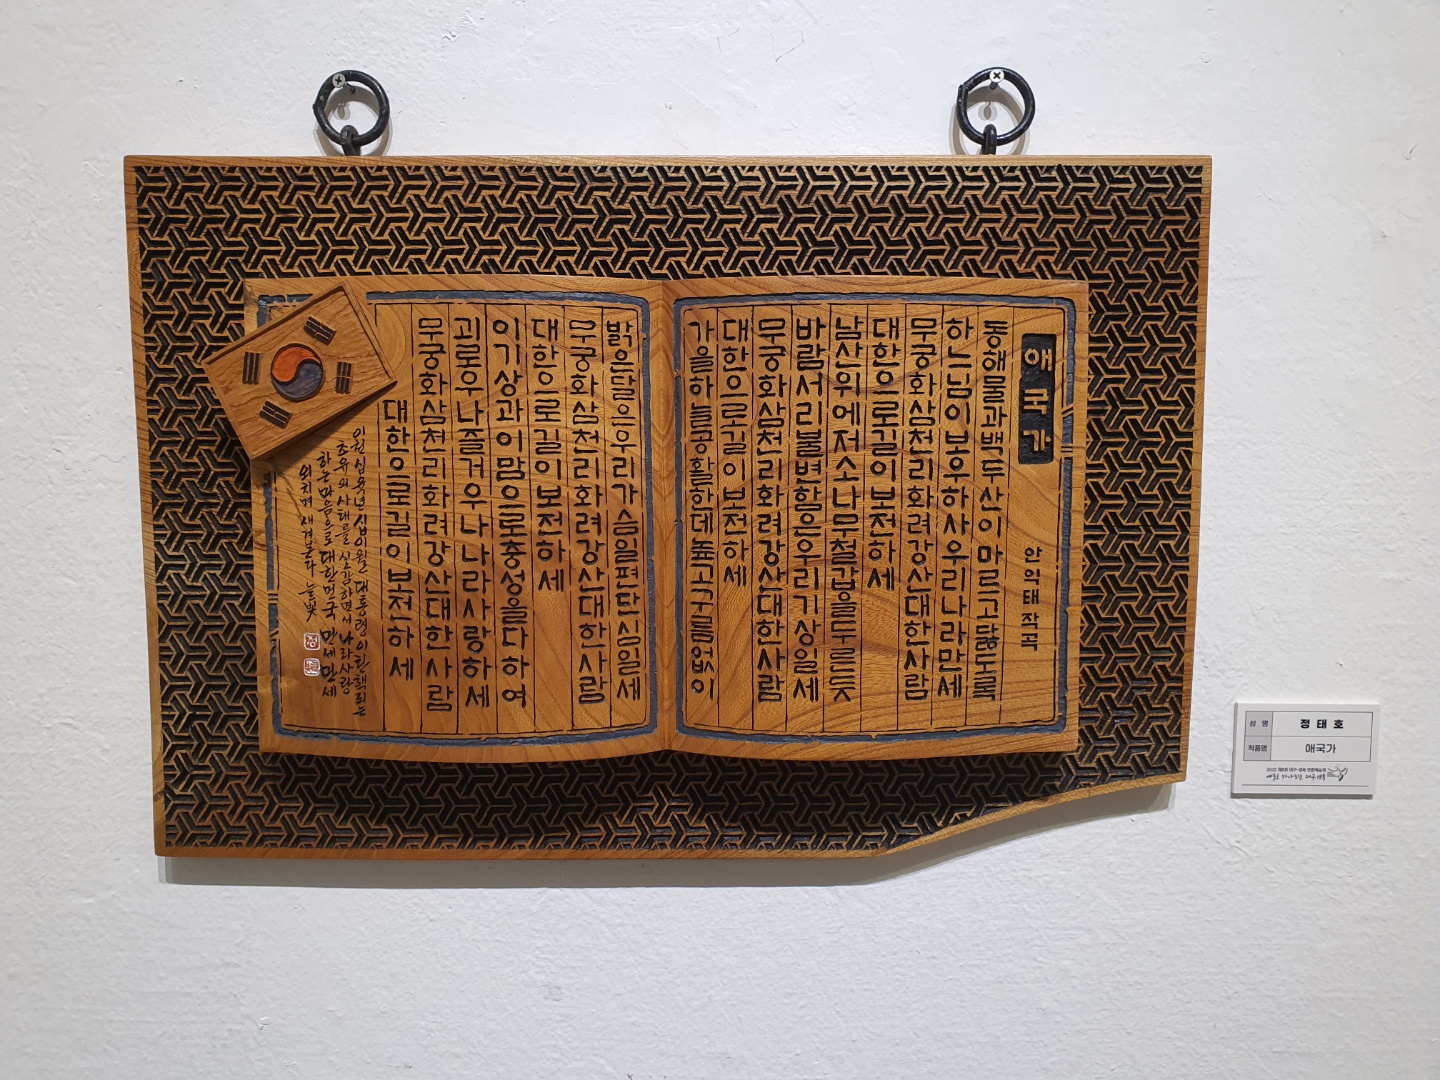 애국가
안익태 작곡
동해물과백두산이마르고닳도록
하느님이보우하사우리나라만세
무궁화삼천리화려강산대한사람
대한으로길이보전하세
남산위에저소나무철갑을두른듯
바람서리불변함은우리기상일세
무궁화삼천리화려강산대한사람
대한으로길이보전하세
가을하늘공활한데높고구름없이
밝은달은우리가슴일편단심일세
무궁화삼천리화려강산대한사람
대한으로길이보전하세
이기상과이맘으로충성을다하여
괴로우나즐거우나나라사랑하세
무궁화삼천리화려강산대한사람
대한으로길이보전하세
이천십육년 십이월 대통령이탄핵되는
초유의 사태를 실감하면서 나라사랑
하는마음으로 대한민국 만세 만세
외치며 새겨본다 늘빛
성 명 정 태 호
작품명 애국가